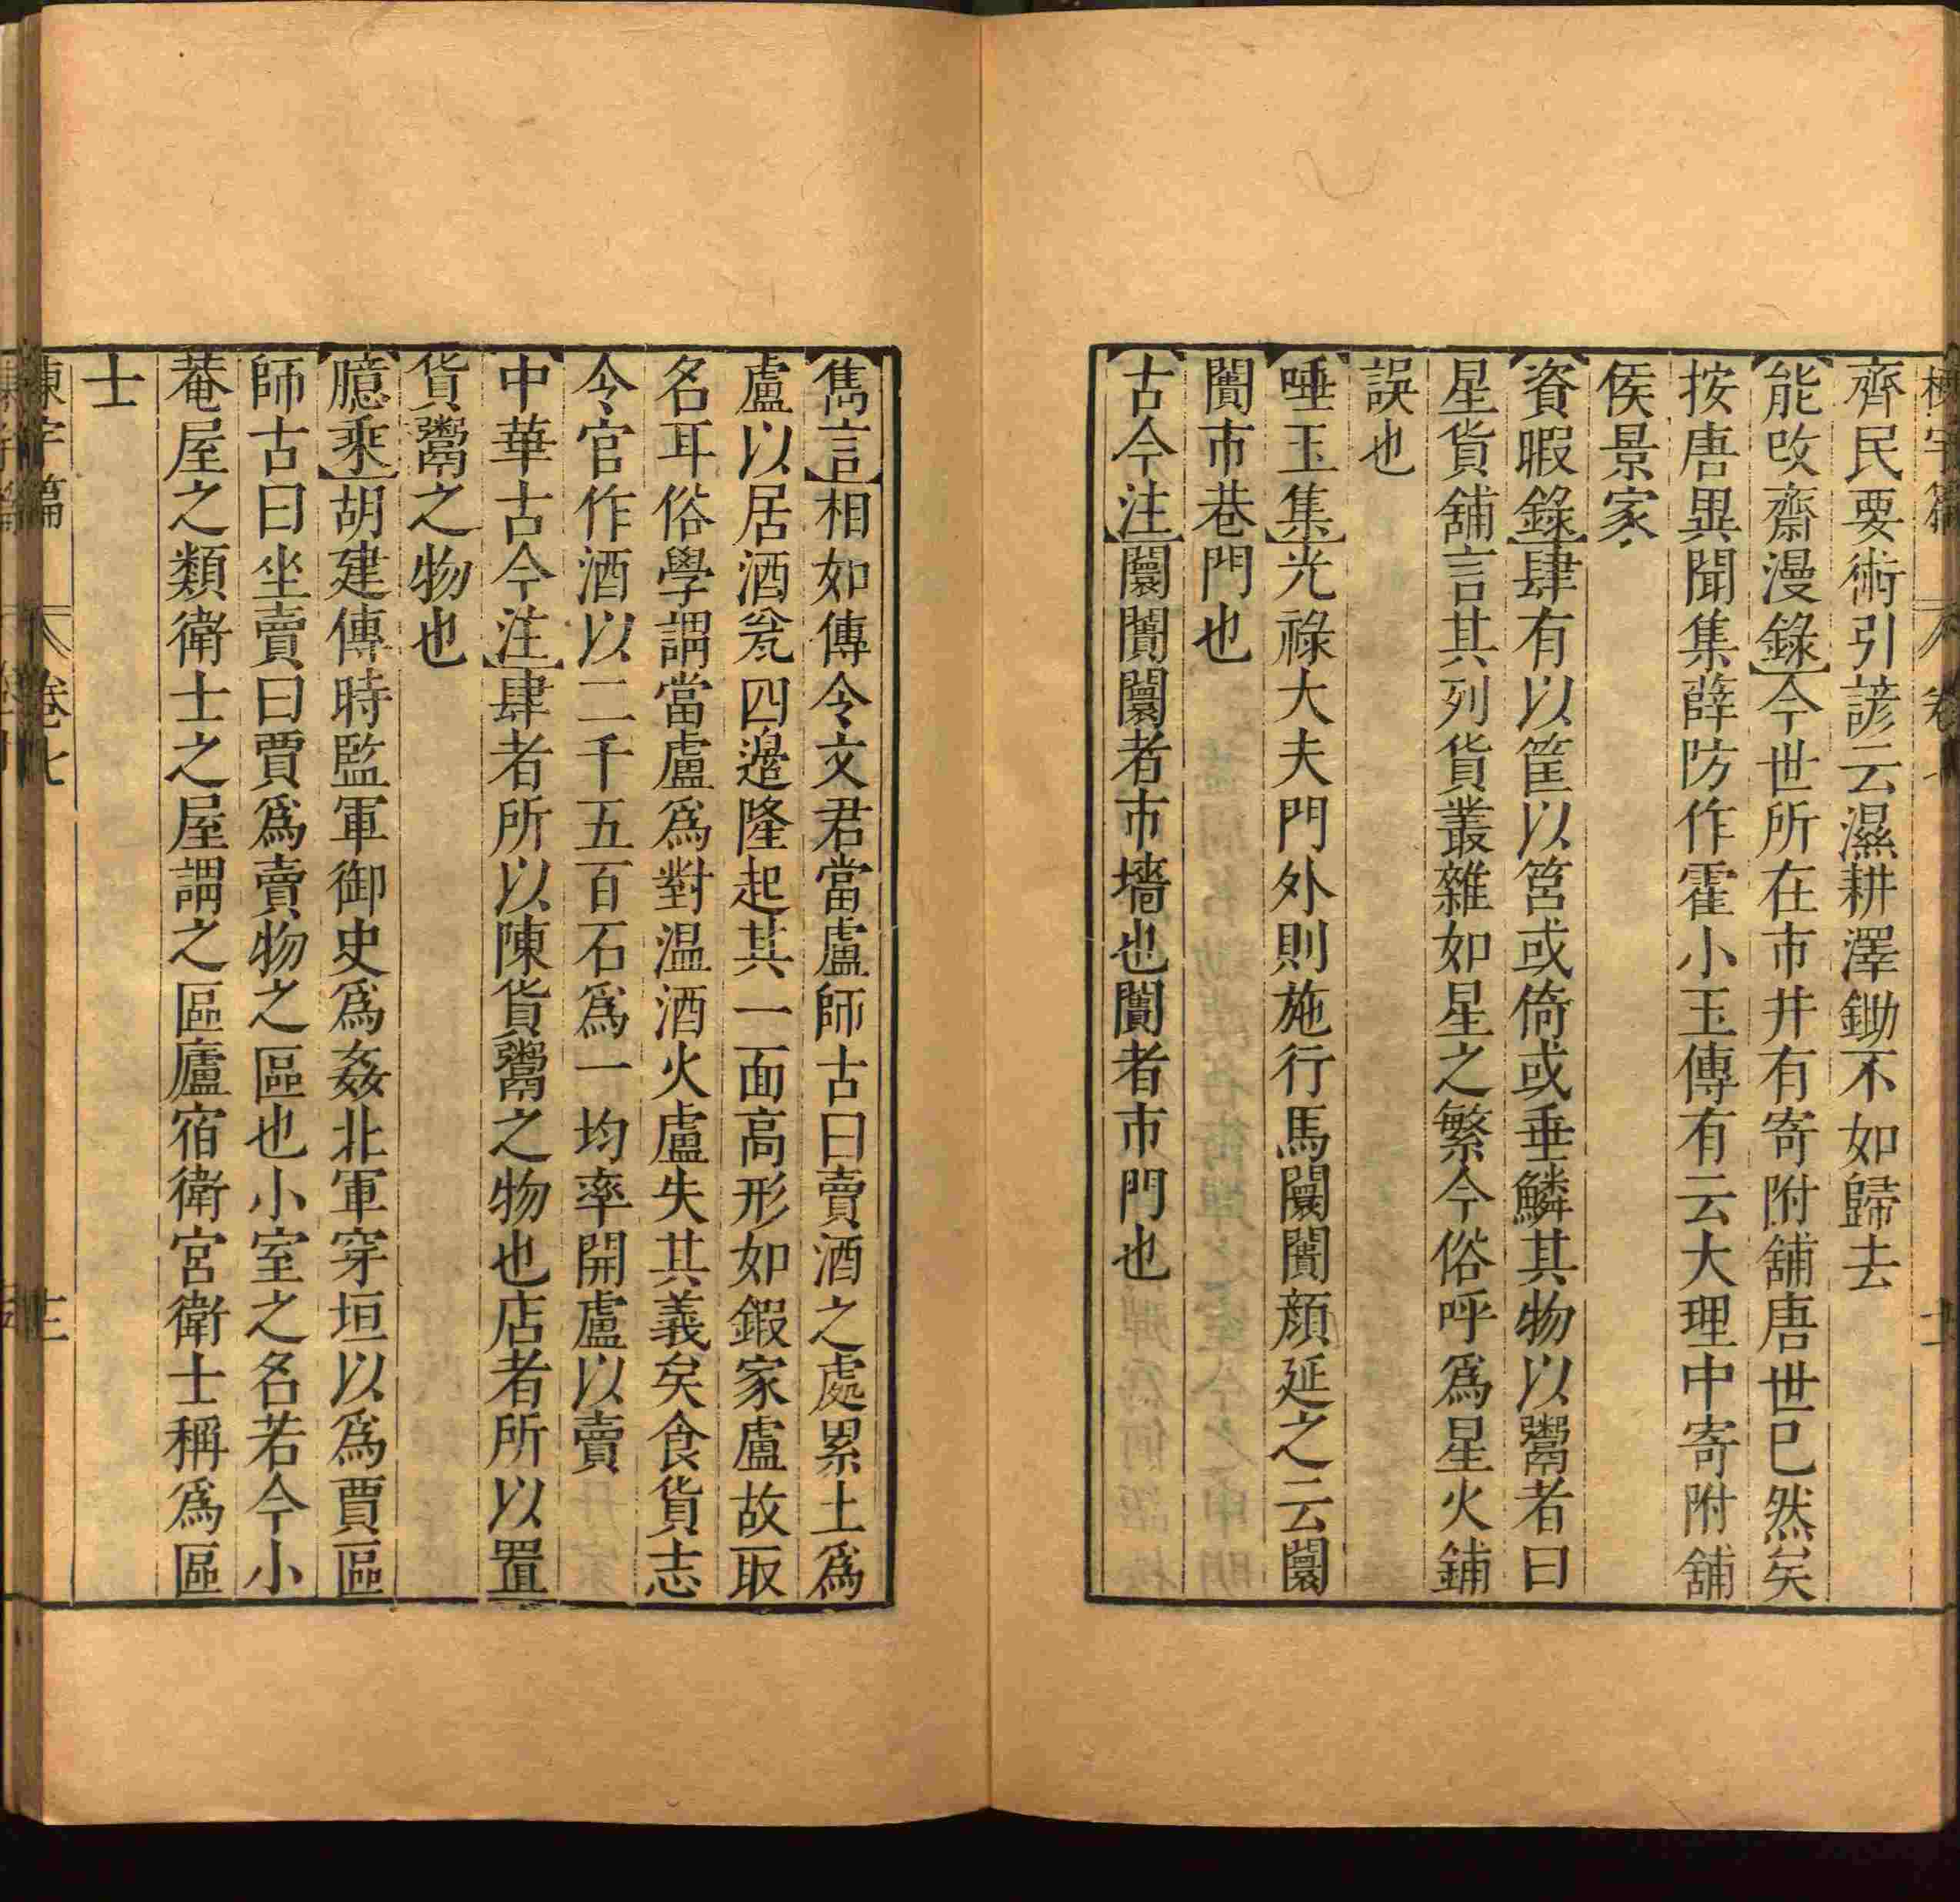 齊民要術引諺云濕耕澤鋤不如歸去
【能攺齋漫錄】今世所在市井有寄附舖唐世巳然矣
按唐異聞集薛防作霍小玉傳有云大理中寄附舖
侯景家
【資暇錄】肆有以筐以筥或倚或垂鱗其物以鬻者曰
星貨舖言其列貨叢雜如星之繁今俗呼爲星火鋪
誤也
【唾玉集】光祿大夫門外則施行馬闤闠顔延之云闤
闠市巷門也
【古今注】闤闠闤者市墻也闠者市門也
【雋言】相如傳令文君當盧師古曰賣酒之處累土爲
盧以居酒瓮四邉隆起其一面高形如鍜家盧故取
名耳俗學謂當盧爲對温酒火盧失其義矣食貨志
令官作酒以二千五百石爲一均率開盧以賣
【中華古今注】肆者所以陳貨鬻之物也店者所以置
貨鬻之物也
【臆乘】胡建傳時監軍御史爲姦北軍穿垣以爲賈區
師古曰坐賣曰賈爲賣物之區也小室之名若今小
菴屋之類衛士之屋謂之區廬宿衛宮衛士稱爲區
士
卷七